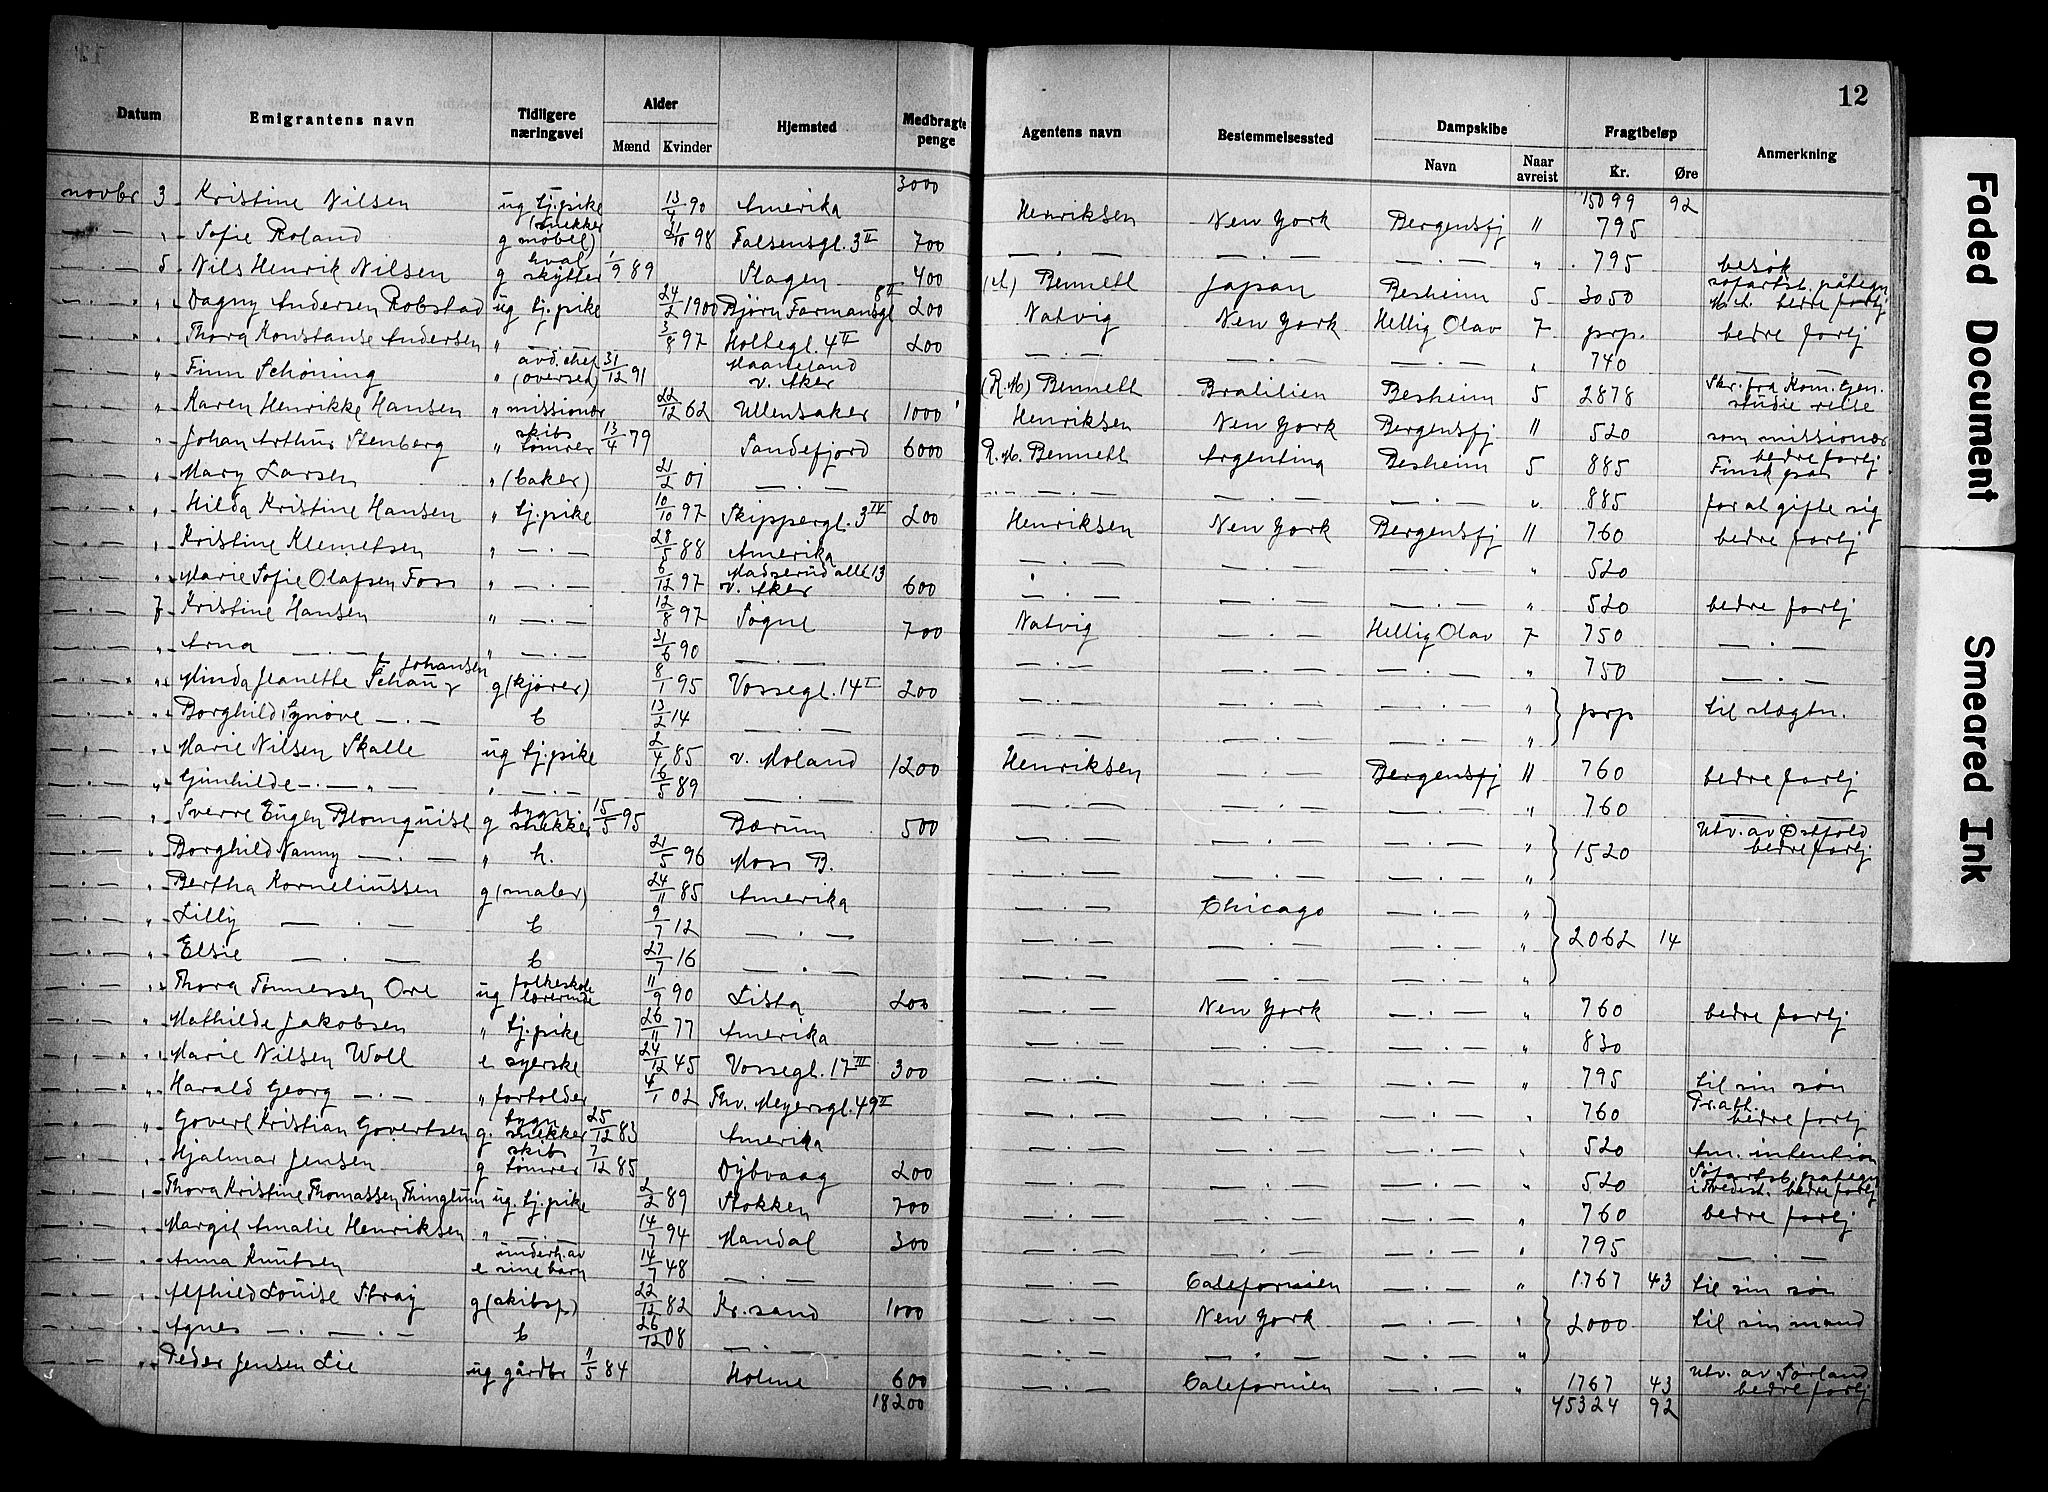 12
Datum | Emigrantens navn | Tidligere næringsvei | Alder Mænd Kvinder | Hjemsted | Medbragte penge | Agentens navn | Bestemmelsessted | Dampskibe Navn Naar avreist | Fragtbeløp Kr. Øre | Anmerkning
3000 | 15099 92
novbr 3 Kristine Nilsen | ug tj.pike | 13/4 90 | Amerika | Henriksen | New York | Bergensfj 11 | 795
" Sofie Roland | g (snekker møbel) | 21/10 98 | Falsensgt. 3 II | 700 | — . — | — . — | — . — " | 795 | besøk
5 Nils Henrik Nilsen | g hval skytter | 1/9 89 | Slagen | 400 | (A) Bennett | Japan | Besheim 5 | 3050 | søfartsb. påtegn bedre forhj
" Dagny Andersen Robstad | ug tj.pike | 24/2 1900 | Bjørn Farmansgt 8 II | 200 | Natvig | New York | Hellig Olav 7 | prp. | bedre forhj
" Thora Konstanse Andersen | " — | 3/8 97 | Holtegt. 4 II | 200 | — . — | — . — | — . — " | 740 | — . —
" Finn Schöning | " avd.chef (oversed) | 31/12 91 | v. Aker | (R.M) Bennett | Brasilien | Besheim 5 | 2878 | Skr. fra Kom. Gen. studie reise
" Karen Henrikke Hansen | " missionær | 22/12 62 | Ullensaker | 1000 | Henriksen | New York | Bergensfj 11 | 520 | som missionær
" Johan Arthur Stenberg | " skibs tømrer | 13/4 79 | Sandefjord | 6000 | R.M. Bennett | Argentina | Besheim 5 | 885 | bedre forhj Finsk pas
" Mary Larsen | " (baker) | 21/2 01 | — . — | — . — | — . — | — . — " | 885 | for at gifte sig
" Hilda Kristine Hansen | " tj.pike | 10/10 97 | Skippergt. 3 IV | 200 | Henriksen | New York | Bergensfj 11 | 760 | bedre forhj
" Kristine Klemetsen | " — . — | 28/5 88 | Amerika | — . — | — . — | — . — " | 520
" Marie Sofie Olafsen Foss | " — . — | 6/12 97 | Madserud allé 13 v. Aker | 600 | — . — | — . — | — . — " | 520 | bedre forhj
7 Kristine Hansen | " — . — | 12/8 97 | Søgne | 700 | Natvig | — . — | Hellig Olav 7 | 750 | — . —
" Arna — . — | " — . — | 31/6 90 | — . — | — . — | — . — | — . — " | 750 | — . —
" Minda Jeanette Schau f. Johansen | g (kjører) | 8/1 95 | Vossegt. 14 I | 200 | — . — | — . — | — . — " | prp | til slægtn.
" Borghild Synøve — . — | b | 13/2 14 | — . — | — . — | — . — | — . — "
" Marie Nilsen Skalle | ug tj.pike | 2/4 85 | v. Moland | 1200 | Henriksen | — . — | Bergensfj 11 | 760 | bedre forhj
" Gunhilde — . — " — | " — . — | 16/5 89 | — . — | — . — | — . — | — . — " | 760 | — . —
" Sverre Eugen Blomquist | g bygn. snekker | 15/5 95 | Bærum | 500 | — . — | — . — | — . — " | 1520 | Utv. av Østfold bedre forhj
" Borghild Nanny — . — | " h. | 21/5 96 | Moss B. | — . — | — . — | — . — "
" Bertha Korneliussen | g (maler) | 24/11 85 | Amerika | — . — | Chicago | — . — " | 2062 14
" Lilly — . — | b | 9/7 12 | — . — | — . — | — . — | — . — "
" Elsie — . — | b | 27/7 16 | — . — | — . — | — . — | — . — "
" Thora Tønnessen Ore | ug folkeskole lærerinde | 11/9 90 | Lista | 200 | — . — | New York | — . — " | 760 | bedre forhj
" Mathilde Jakobsen | " tj.pike | 26/11 77 | Amerika | — . — | — . — | — . — " | 830
" Marie Nilsen Woll | e syerske | 24/12 45 | Vossegt. 17 III | 300 | — . — | — . — | — . — " | 795 | til sin søn
" Harald Georg — . — | " forholder | 4/1 02 | Thv. Meyersgt. 49 II | — . — | — . — | — . — " | 760 | Fr. att. bedre forhj
" Govert Kristian Govertsen | g. bygn snekker | 25/12 83 | Amerika | — . — | — . — | — . — " | 520 | Am. intention
" Hjalmar Jensen | g skibs tømrer | 7/12 85 | Dybvaag | 200 | — . — | — . — | — . — " | 520 | Søfartsb. påtegn i Tvedest. bedre forhj
" Thora Kristine Thomassen Thinglum | ug. tj.pike | 2/2 89 | Stokken | 700 | — . — | — . — | — . — " | 760 | bedre forhj
" Margit Amalie Henriksen | " — . — | 14/7 94 | Mandal | 300 | — . — | — . — | — . — " | 795 | — . —
" Anna Knutsen | e underh. av sine barn | 14/7 48 | — . — | — . — | Californien | — . — " | 1767 43 | til sin søn
" Alfhild Louise Stray | g (skibsf) | 22/12 82 | Kr.sand | 1000 | — . — | New York | — . — " | 2000 | til sin mand
" Agnes — . — . — | b | 26/12 08 | — . — | — . — | — " — | — . — "
" Peder Jensen Lie | ug gårdbr | "/5 84 | Holme | 600 | — . — | Californien | — . — " | 1767 43 | Utv. av Sørland bedre forhj
18200 | 45324 92
Faded Document
Smeared Ink